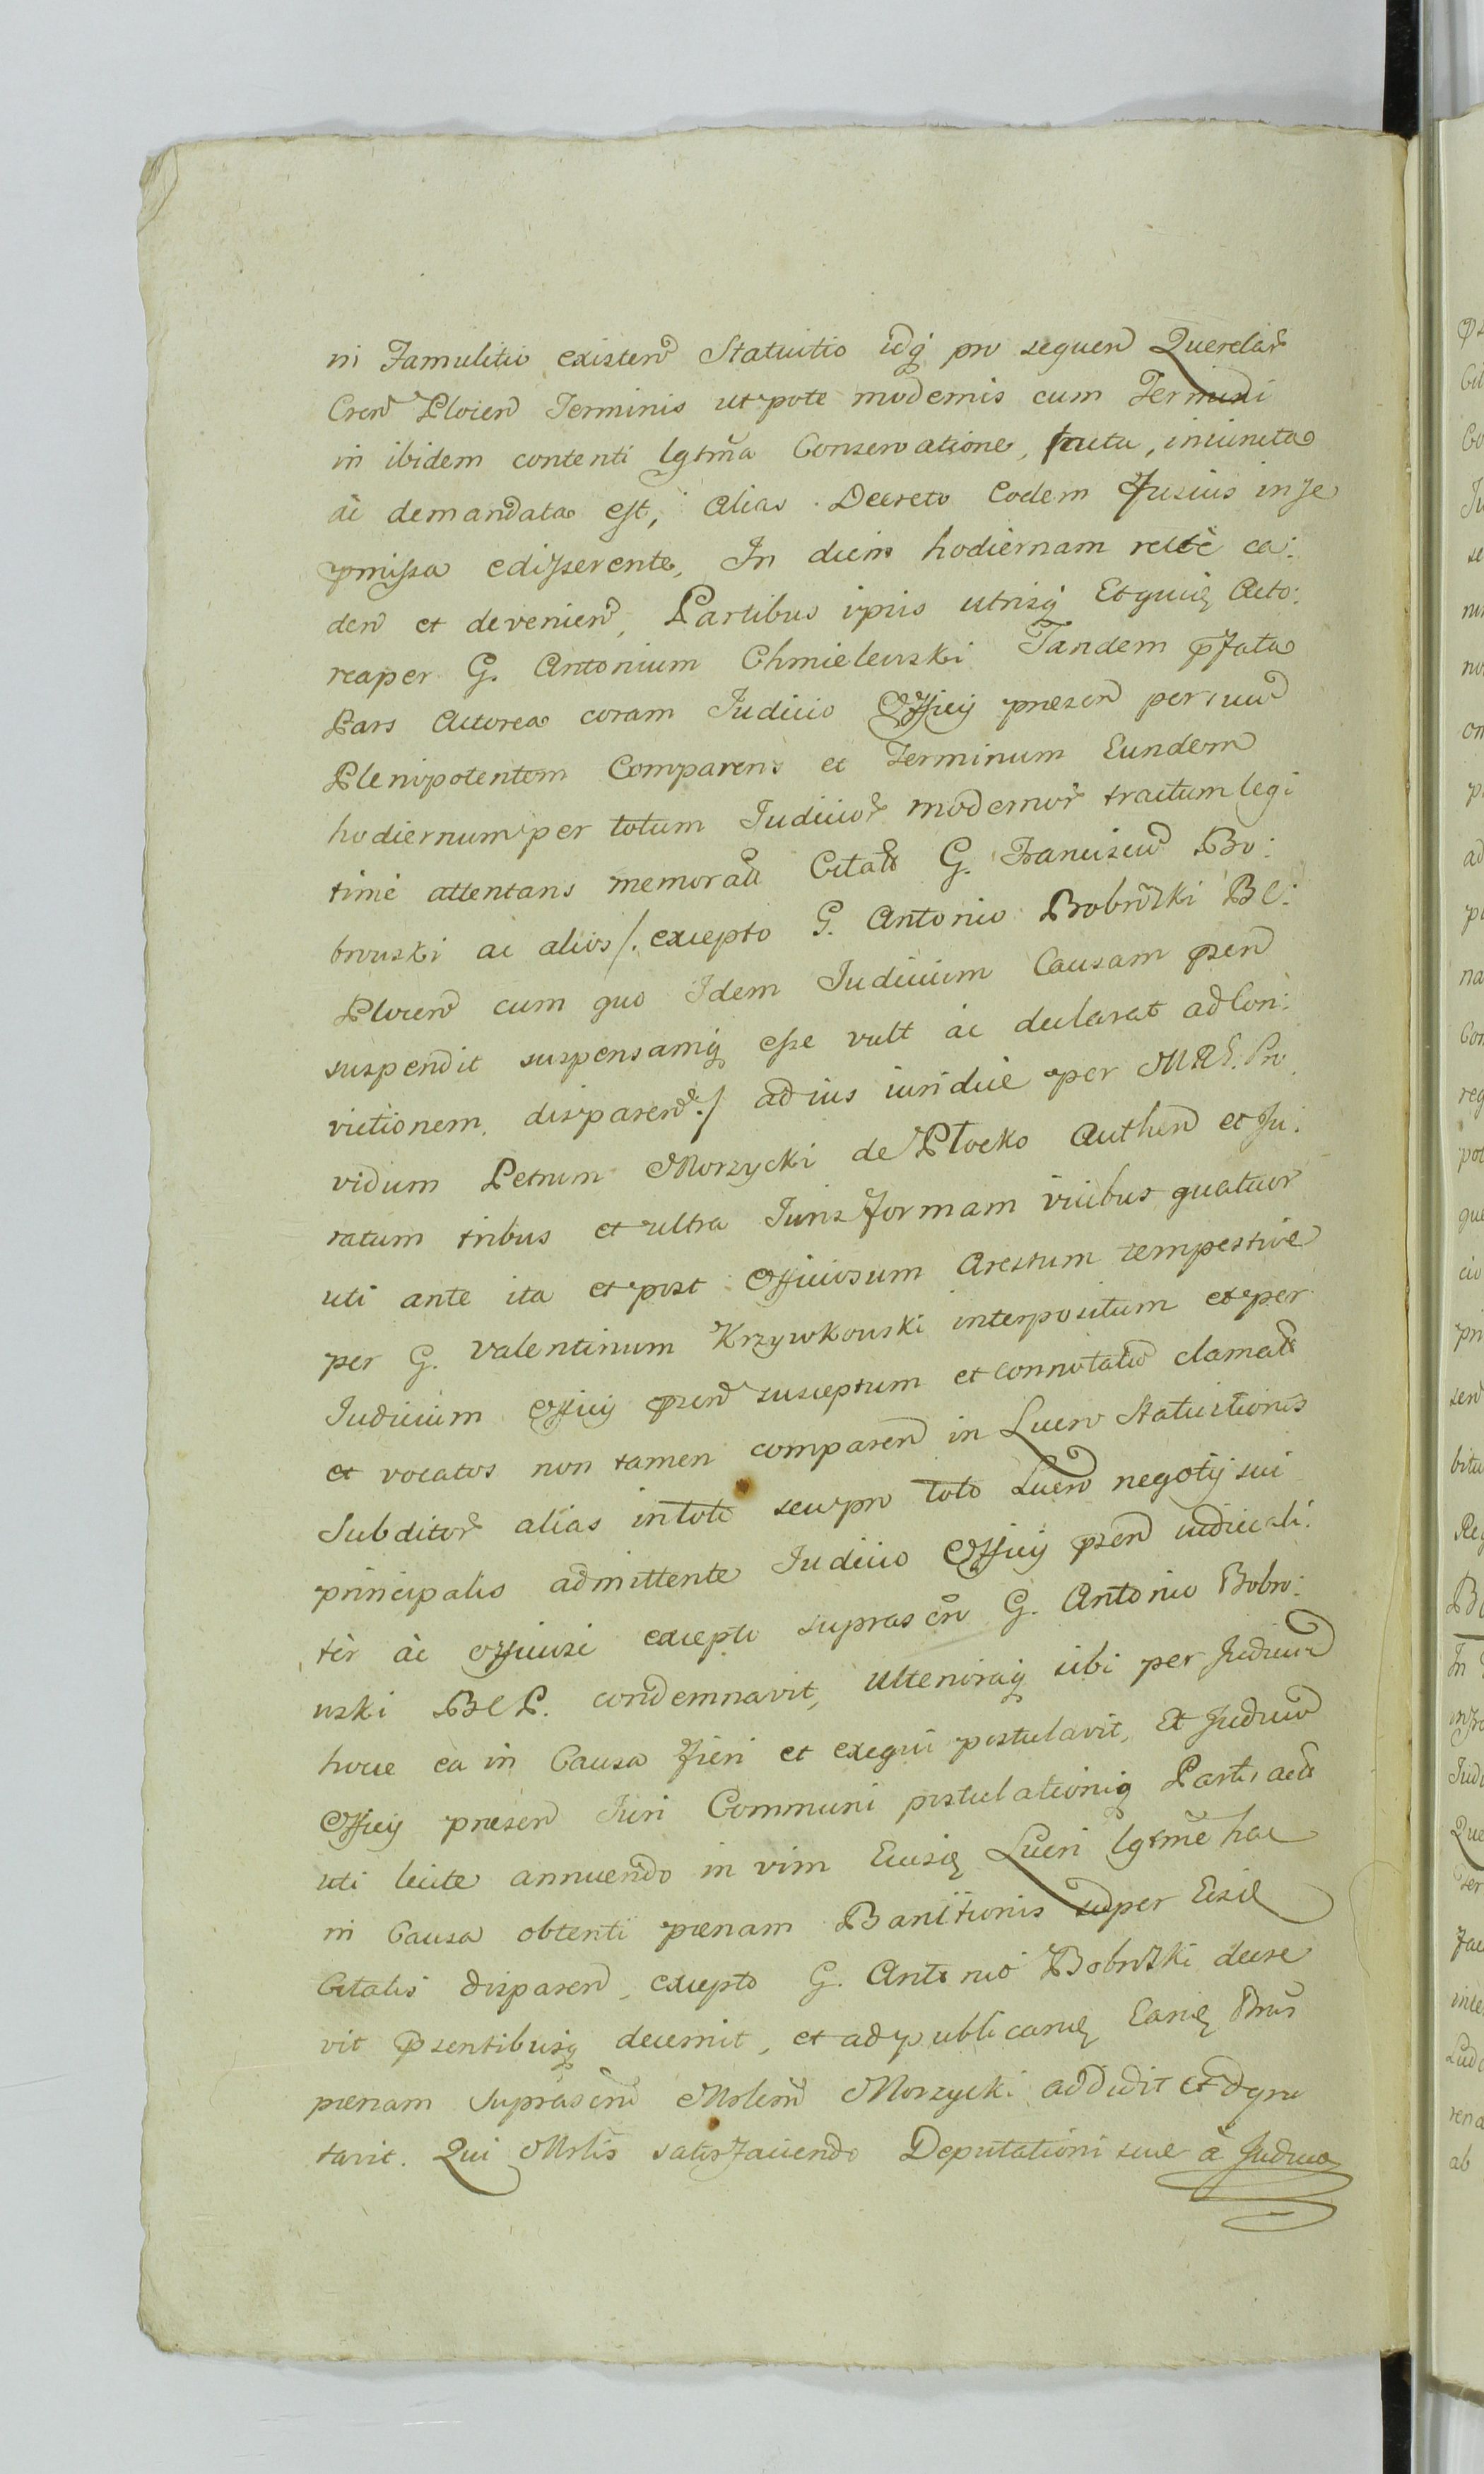 in Famulitio existen Statuitio idq pro sequen Querelar
Cren Plocen Terminis utpote modernis cum Termini
in ibidem contenti lgtma Conservatione, facta, iniuncta
ac demandata est, alias Decreto Eodem Fusius in se
pmissa edisserente, In diem hodiernam recte ca:
den et devenien, Partibus ipsis utrisq Etquidē Acto:
rea per G. Antonium Chmielewski Tandem pfata
Pars Actorea coram Iudicio Officij præsen per suu
Plenipotentem Comparens et Terminum Eundem
hodiernum per totum Iudicior modernor tractum legi
time attentans memorat Citat G. Franciscu Bo:
browski ac alios /. excepto G. Antonio Bobrozki BC:
Plocen cum quo Idem Iudicium Causam psen
suspendit suspensamq esse vult ac declarat ad Con:
victionem, disparen ./ ad ius iuridice per MRE. Pro
vidum Petrum Morzycki de Płocko Authen et Ju:
ratum tribus et ultra Juris formam vicibus quatuor
uti ante ita et post Officiosum Arestum tempestive
per G. Valentinum Krzywkowski interpositum et per
Iudicium Officij psen susceptum et connotatu clamat
et vocatos non tamen comparen in Lucro Statuitionis
Subditor alias in toto seu pro toto Lucro negotij sui
principalis admittente Iudicio Officij psen iudiciali:
ter ac officiose excepto suprascrō G. Antonio Bobro:
wski BCP. condemnavit, Ulterioraq sibi per Judiciu
hocce ea in Causa fieri et exequi postulavit, Et Judiciu
Officij præsen Juri Communi postulationiq Partis act
uti licite annuendo in vim Eiusdē Lucri lgtme hac
in Causa obtenti pœnam Bannitionis super Eisdē
Citatis disparen, excepto G. Antonio Bobrozki decre
vit psentibusq decernit, et ad publicandē Eandē
pœnam suprascrm Mrlem Morzycki addidit et
tavit. Qui Mrlis satisfaciendo Deputationi suæ à Judicio